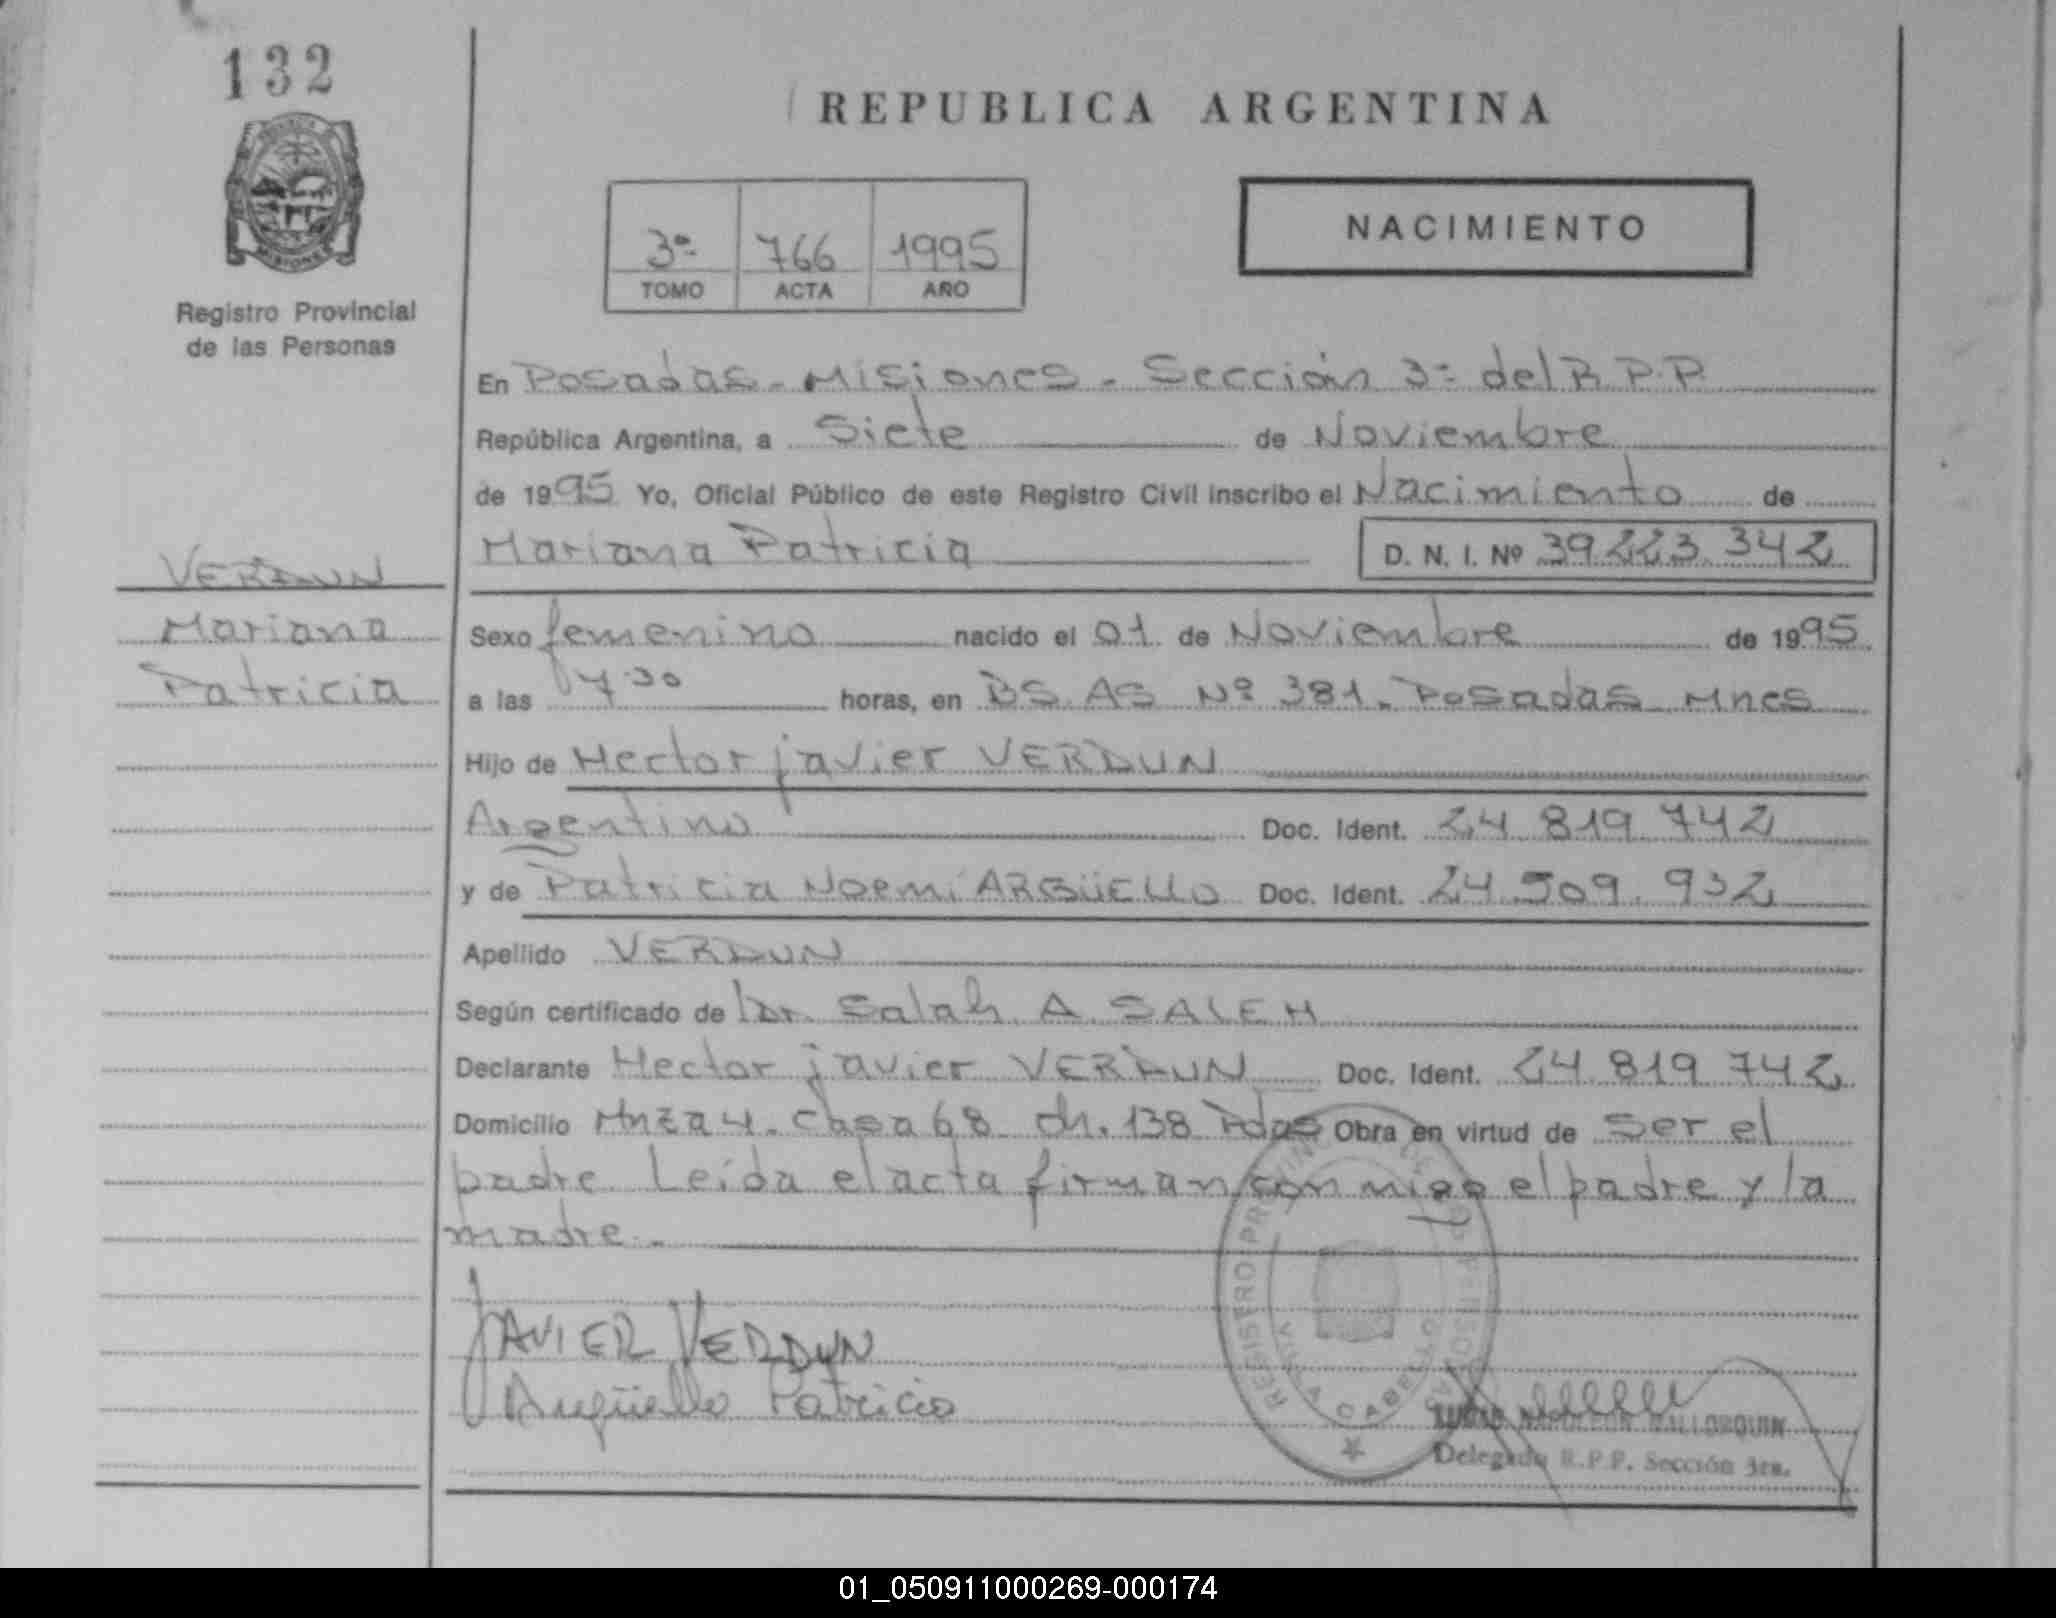 132
REPUBLICA ARGENTINA
NACIMIENTO
3ª 766 1995
TOMO ACTA AÑO
MISIONES
Registro Provincial
de las Personas
En Posadas - Misiones - Sección 3ª del R.P.P.
República Argentina, a Siete de Noviembre
de 1995 Yo, Oficial Público de este Registro Civil inscribo el Nacimiento de
Mariana Patricia D. N. I. Nº 39.223.342
VERDUN
Mariana
Patricia
Sexo femenino nacido el 01 de Noviembre de 1995
a las 7.30 horas, en BS. AS Nº 381. Posadas Mnes
Hijo de Hector javier VERDUN
Argentino Doc. Ident. 24.819.742
y de Patricia Noemí ARGÜELLO Doc. Ident. 24.509.932
Apellido VERDUN
Según certificado de Dr. Salah A. SALEH
Declarante Hector javier VERDUN Doc. Ident. 24.819.742
Domicilio Mnza 4. Casa 68 Ch. 138 Pdas Obra en virtud de Ser el
padre. Leída el acta firman conmigo el padre y la
madre.-
JAVIER VERDUN
Argüello Patricia
REGISTRO PROVINCIAL DE LAS
VILLA CABELLO
NAPOLEON MALLORQUIN
Delegado R.P.P. Sección 3ra.
01_050911000269-000174